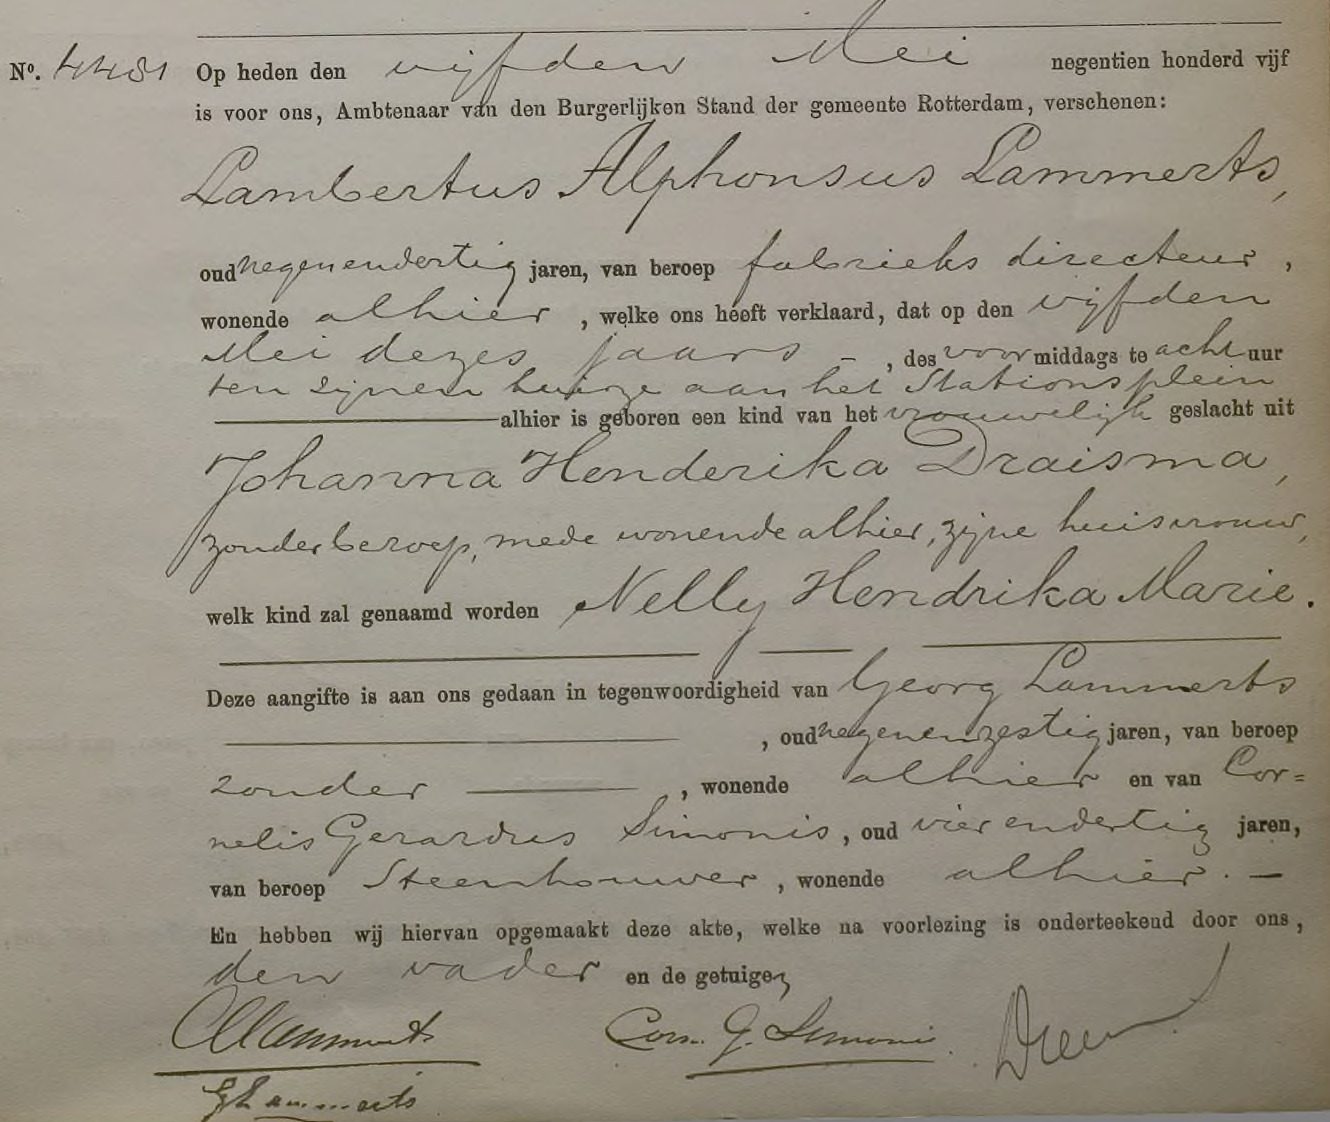 No. 4481 Op heden den vijfden Mei negentien honderd vijf
is voor ons, Ambtenaar van den Burgerlijken Stand der gemeente Rotterdam, verschenen:
Lambertus Alphonsus Lammerts,
oud negenendertig jaren, van beroep fabrieks directeur,
wonende alhier, welke ons heeft verklaard, dat op den vijfden
Mei dezes jaars –, des voormiddags te acht uur
ten zijnen huize aan het Stationsplein
alhier is geboren een kind van het vrouwelijk geslacht uit
Johanna Henderika Draisma,
zonder beroep, mede wonende alhier, zijne huisvrouw,
welk kind zal genaamd worden Nelly Hendrika Marie.
Deze aangifte is aan ons gedaan in tegenwoordigheid van Georg Lammerts
, oud negenenzestig jaren, van beroep
zonder , wonende alhier en van Cor=
nelis Gerardus Simonis, oud vierendertig jaren,
van beroep Steenhouwer, wonende alhier. –
En hebben wij hiervan opgemaakt deze akte, welke na voorlezing is onderteekend door ons,
den vader en de getuigen
Lammerts Corn. G. Simonis
Lammerts